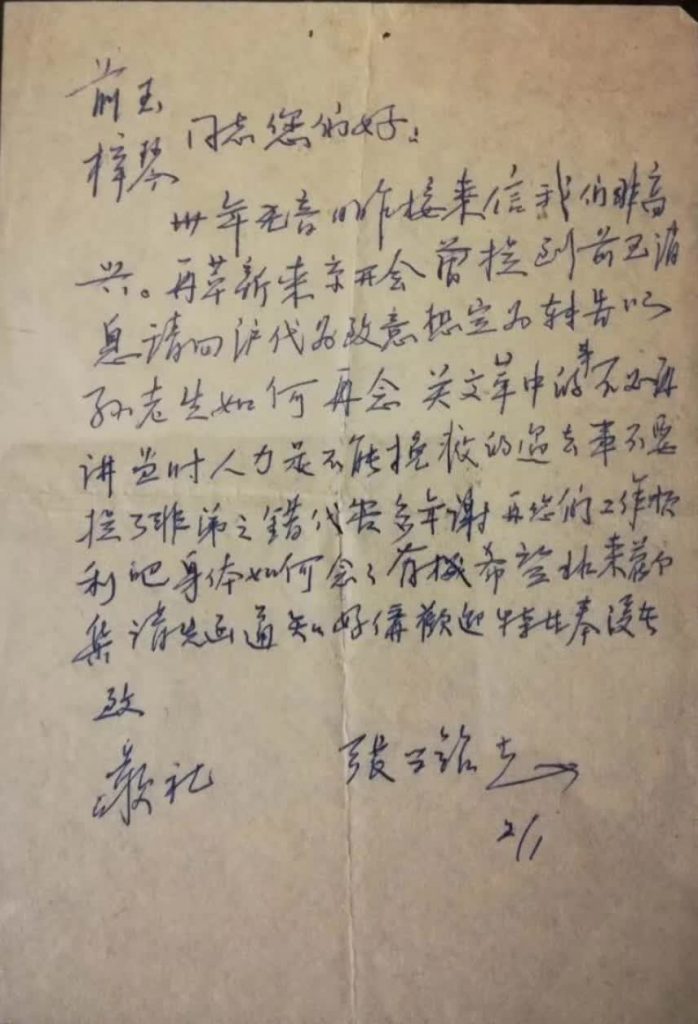 前玉
梓琴 同志您们好！
卅年无音昨接来信我们非高
兴。再革新来京开会曾提到前玉消
息请回沪代为致意想定为转告以
孙老先如何再念 关文革中的事不必再
讲当时人力是不能挽救的过去事不要
提了 之错代 多年谢 再您们工作顺
利吧身体如何念之有机希望北来
集请先函通知好倩欢迎特此奉复
致
敬礼 张 铭
2/1